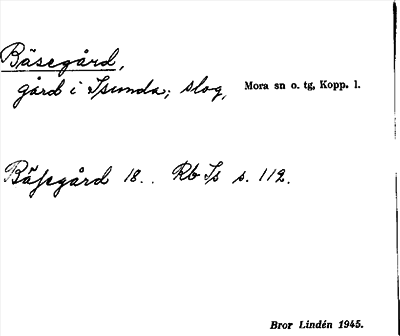 Bäsegård,
gård i Isunda; slog, Mora sn o. tg, Kopp. l.
Bäsegård 18.. Rb Is s. 112.
Bror Lindén 1945.